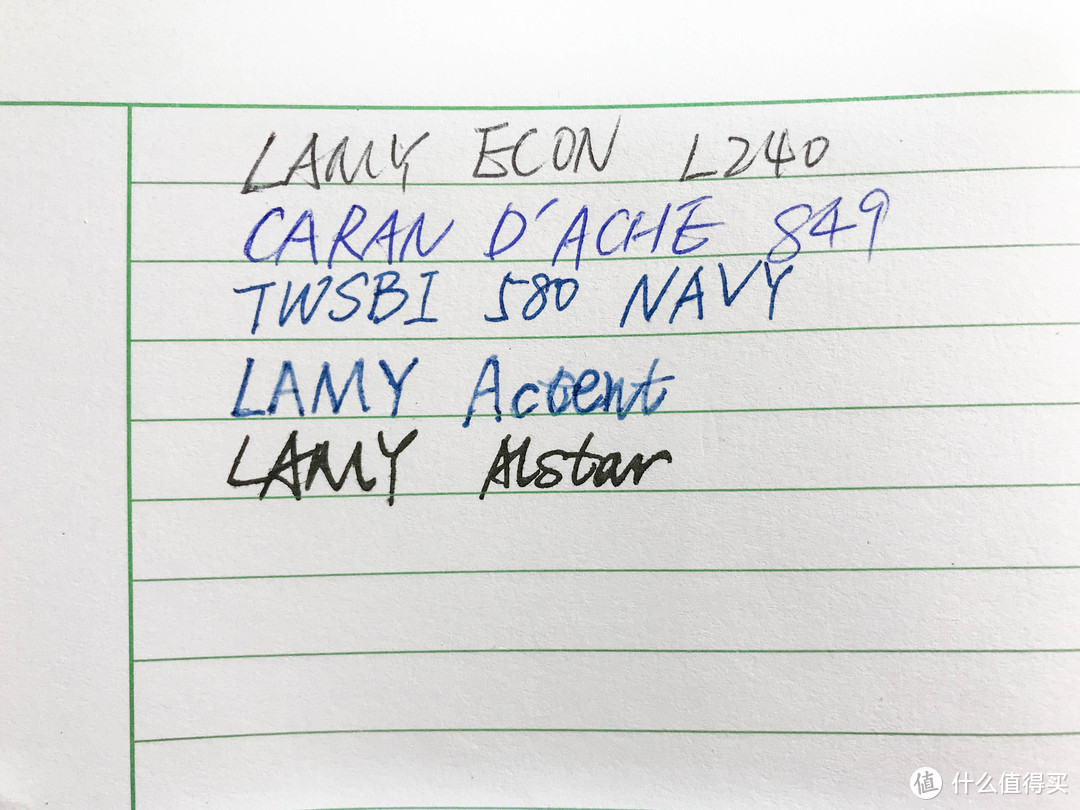 LAMY ECON L240
CARAN D'ACHE 849
TWSBI 580 NAVY
LAMY Accent
LAMY Alstar
值 什么值得买